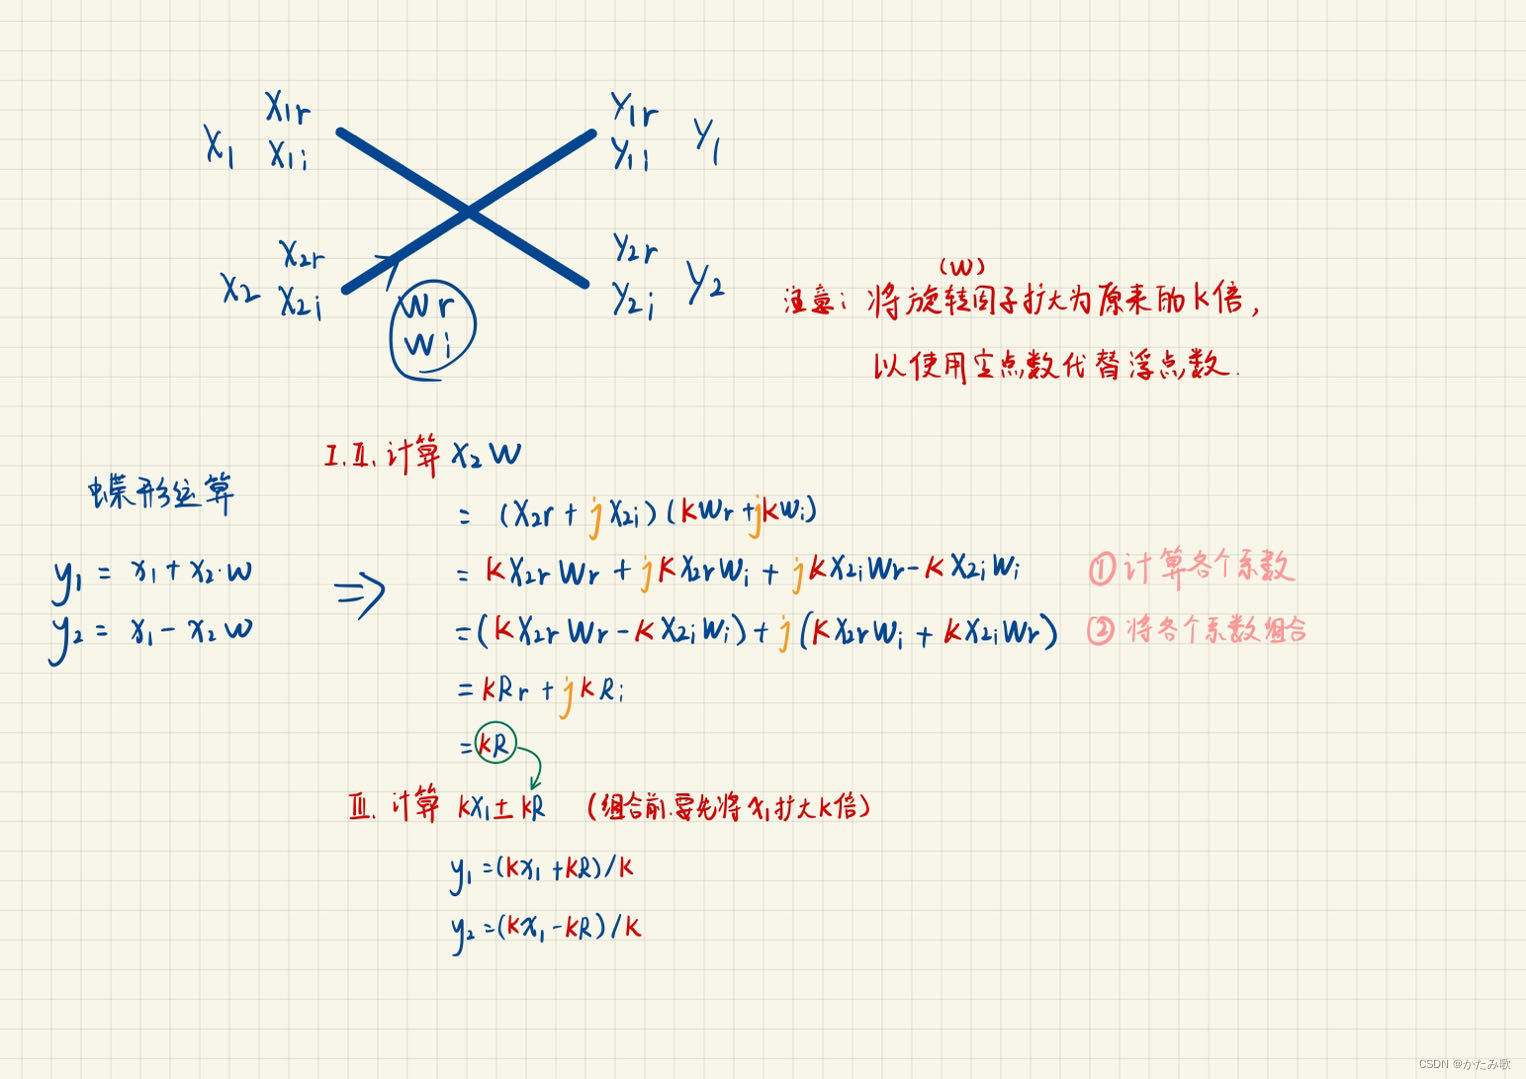 X1r
X1 X1i
Y1r
Y1i Y1
X2r
X2 X2i
Wr
Wi
Y2r
Y2i Y2
(W)
注意: 将旋转因子扩大为原来的K倍,
以使用定点数代替浮点数.
蝶形运算
y1 = x1 + x2·w
y2 = x1 - x2 w
⇒
I.II. 计算 X2 W
= (X2r + j X2i) (KWr + jKWi)
= K X2r Wr + j K X2r Wi + j K X2i Wr - K X2i Wi ① 计算各个系数
= (K X2r Wr - K X2i Wi) + j (K X2r Wi + K X2i Wr) ② 将各个系数组合
= KRr + j K Ri
= KR
III. 计算 KX1 ± KR (组合前.要先将 x1 扩大K倍)
y1 = (Kx1 + KR) / K
y2 = (Kx1 - KR) / K
CSDN @かたみ歌